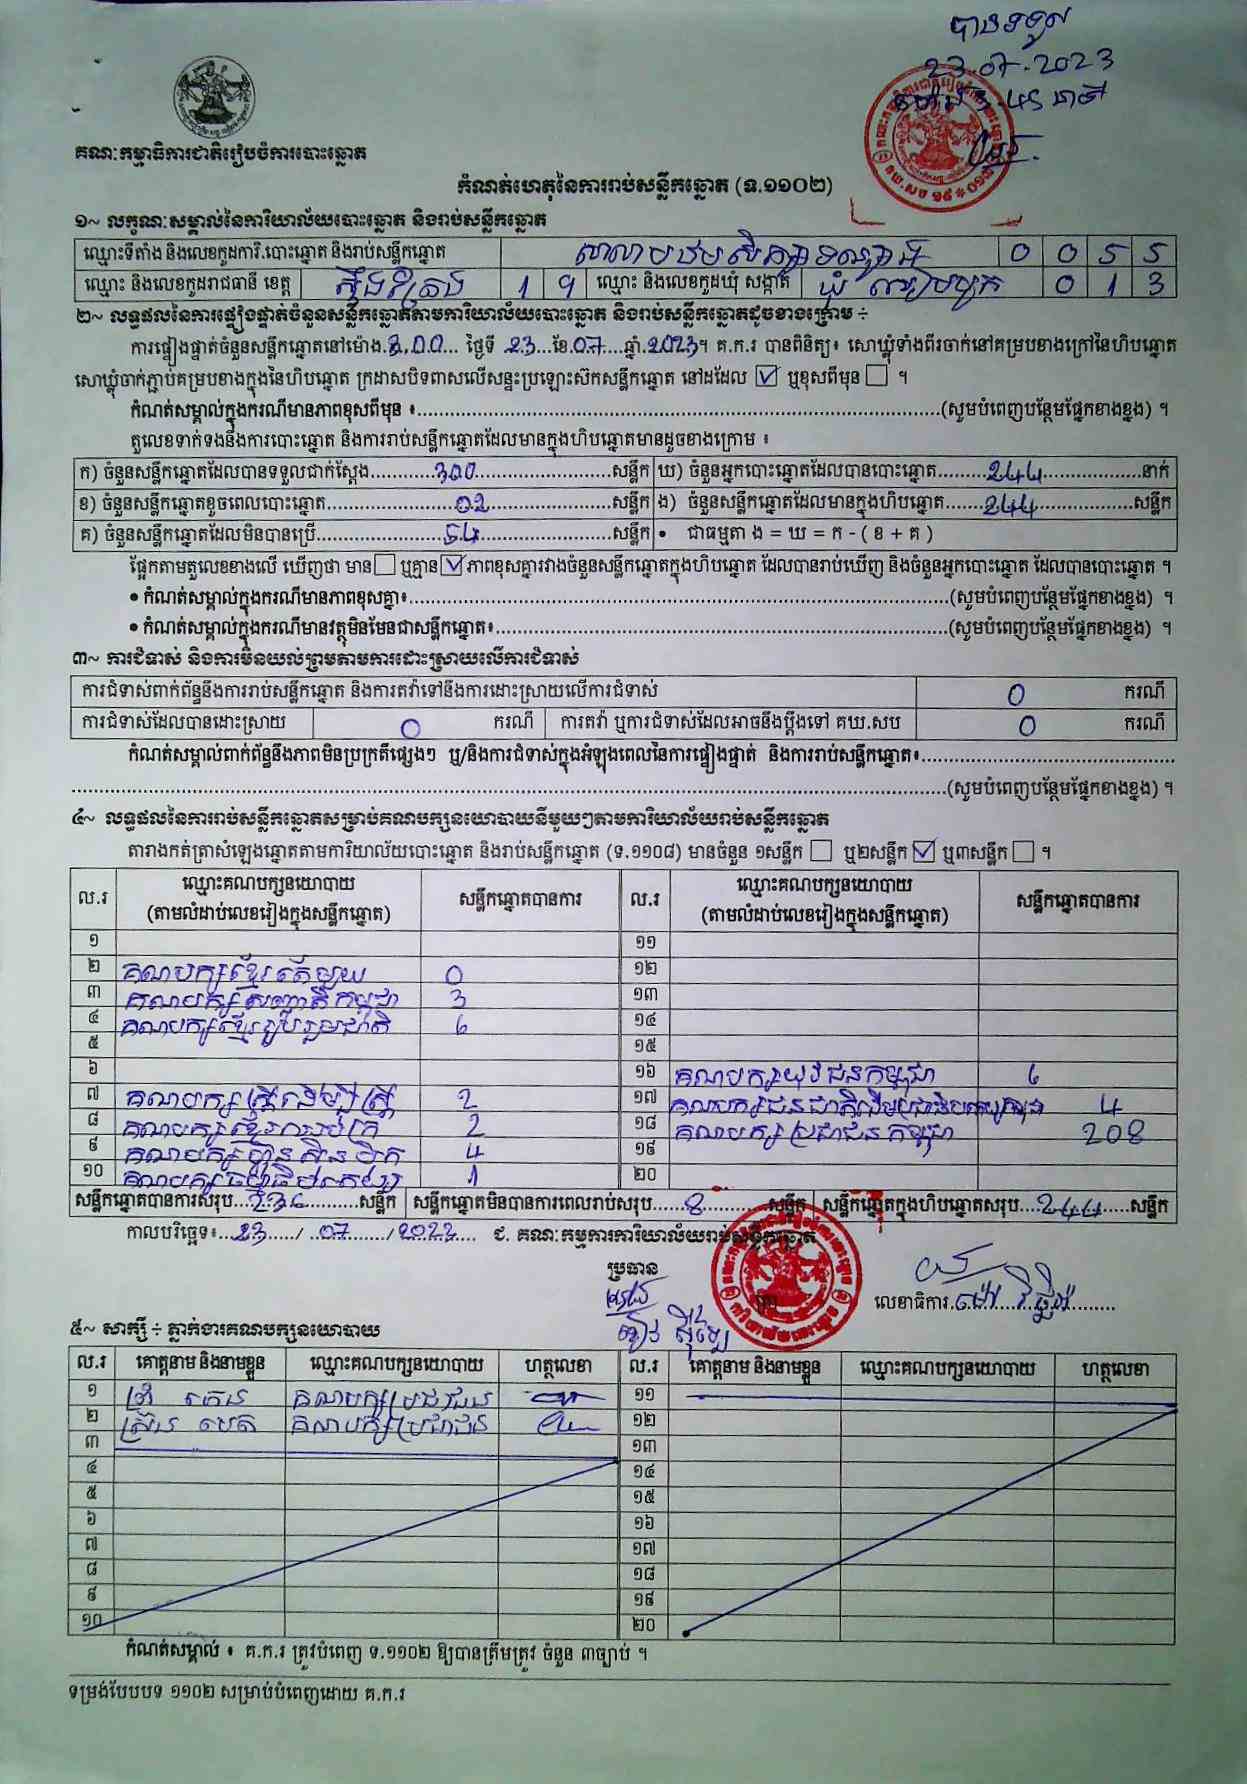 បានទទួល
23.07.2023
គណៈកម្មាធិការជាតិរៀបចំការបោះឆ្នោត
កំណត់ហេតុនៃការរាប់សន្លឹកឆ្នោត (ទ.១១០២)
១~ លក្ខណៈសម្គាល់នៃការិយាល័យបោះឆ្នោត និងរាប់សន្លឹកឆ្នោត
ឈ្មោះទីតាំង និងលេខកូដការិ.បោះឆ្នោត និងរាប់សន្លឹកឆ្នោត សាលាបឋមសិក្សា 0 0 5 5
ឈ្មោះ និងលេខកូដរាជធានី ខេត្ត ស្ទឹងត្រែង 1 9 ឈ្មោះ និងលេខកូដឃុំ សង្កាត់ ឃុំ 0 1 3
២~ លទ្ធផលនៃការផ្ទៀងផ្ទាត់ចំនួនសន្លឹកឆ្នោតតាមការិយាល័យបោះឆ្នោត និងរាប់សន្លឹកឆ្នោតដូចខាងក្រោម ៖
ការផ្ទៀងផ្ទាត់ចំនួនសន្លឹកឆ្នោតនៅម៉ោង.3.00... ថ្ងៃទី 23...ខែ.07....ឆ្នាំ.2023។ គ.ក.រ បានពិនិត្យ៖ សោឃ្លុំទាំងពីរចាក់នៅគម្របខាងក្រៅនៃហិបឆ្នោត
សោឃ្លុំចាក់ភ្ជាប់គម្របខាងក្នុងនៃហិបឆ្នោត ក្រដាសបិទពាសលើសន្ទះប្រឡោះស៊កសន្លឹកឆ្នោត នៅដដែល ☑ ឬខុសពីមុន ☐ ។
កំណត់សម្គាល់ក្នុងករណីមានភាពខុសពីមុន ៖...(សូមបំពេញបន្ថែមផ្នែកខាងខ្នង) ។
តួលេខទាក់ទងនឹងការបោះឆ្នោត និងការរាប់សន្លឹកឆ្នោតដែលមានក្នុងហិបឆ្នោតមានដូចខាងក្រោម ៖
ក) ចំនួនសន្លឹកឆ្នោតដែលបានទទួលជាក់ស្តែង...300...សន្លឹក ឃ) ចំនួនអ្នកបោះឆ្នោតដែលបានបោះឆ្នោត...244...នាក់
ខ) ចំនួនសន្លឹកឆ្នោតខូចពេលបោះឆ្នោត...02...សន្លឹក ង) ចំនួនសន្លឹកឆ្នោតដែលមានក្នុងហិបឆ្នោត...244...សន្លឹក
គ) ចំនួនសន្លឹកឆ្នោតដែលមិនបានប្រើ...54...សន្លឹក • ជាធម្មតា ង = ឃ = ក - ( ខ + គ )
ផ្អែកតាមតួលេខខាងលើ ឃើញថា មាន ☐ ឬគ្មាន ☑ ភាពខុសគ្នារវាងចំនួនសន្លឹកឆ្នោតក្នុងហិបឆ្នោត ដែលបានរាប់ឃើញ និងចំនួនអ្នកបោះឆ្នោត ដែលបានបោះឆ្នោត ។
• កំណត់សម្គាល់ក្នុងករណីមានភាពខុសគ្នា៖...(សូមបំពេញបន្ថែមផ្នែកខាងខ្នង) ។
• កំណត់សម្គាល់ក្នុងករណីមានវត្ថុមិនមែនជាសន្លឹកឆ្នោត៖...(សូមបំពេញបន្ថែមផ្នែកខាងខ្នង) ។
៣~ ការជំទាស់ និងការមិនយល់ព្រមតាមការដោះស្រាយលើការជំទាស់
ការជំទាស់ពាក់ព័ន្ធនឹងការរាប់សន្លឹកឆ្នោត និងការតវ៉ាទៅនឹងការដោះស្រាយលើការជំទាស់ 0 ករណី
ការជំទាស់ដែលបានដោះស្រាយ 0 ករណី ការតវ៉ា ឬការជំទាស់ដែលអាចនឹងប្តឹងទៅ គឃ.សប 0 ករណី
កំណត់សម្គាល់ពាក់ព័ន្ធនឹងភាពមិនប្រក្រតីផ្សេងៗ ឬ/និងការជំទាស់ក្នុងអំឡុងពេលនៃការផ្ទៀងផ្ទាត់ និងការរាប់សន្លឹកឆ្នោត៖...
...(សូមបំពេញបន្ថែមផ្នែកខាងខ្នង) ។
៤~ លទ្ធផលនៃការរាប់សន្លឹកឆ្នោតសម្រាប់គណបក្សនយោបាយនីមួយៗតាមការិយាល័យរាប់សន្លឹកឆ្នោត
តារាងកត់ត្រាសំឡេងឆ្នោតតាមការិយាល័យបោះឆ្នោត និងរាប់សន្លឹកឆ្នោត (ទ.១១០៨) មានចំនួន ១សន្លឹក ☐ ឬ២សន្លឹក ☑ ឬ៣សន្លឹក ☐ ។
ល.រ ឈ្មោះគណបក្សនយោបាយ (តាមលំដាប់លេខរៀងក្នុងសន្លឹកឆ្នោត) សន្លឹកឆ្នោតបានការ ល.រ ឈ្មោះគណបក្សនយោបាយ (តាមលំដាប់លេខរៀងក្នុងសន្លឹកឆ្នោត) សន្លឹកឆ្នោតបានការ
១ ១១
២ គណបក្សខ្មែរតែមួយ 0 ១២
៣ គណបក្សសញ្ជាតិកម្ពុជា 3 ១៣
៤ គណបក្សខ្មែររួបរួមជាតិ 6 ១៤
៥ ១៥
៦ ១៦ គណបក្សយុវជនកម្ពុជា 6
៧ គណបក្សស្ត្រីដើម្បីស្ត្រី 2 ១៧ គណបក្ស 4
៨ គណបក្សខ្មែរ 2 ១៨ គណបក្សប្រជាជនកម្ពុជា 208
៩ គណបក្ស 4 ១៩
១០ គណបក្សធម្មាធិបតេយ្យ 1 ២០
សន្លឹកឆ្នោតបានការសរុប...236...សន្លឹក សន្លឹកឆ្នោតមិនបានការពេលរាប់សរុប...8...សន្លឹក សន្លឹកឆ្នោតក្នុងហិបឆ្នោតសរុប...244...សន្លឹក
កាលបរិច្ឆេទ៖...23..../..07......./.2023.... ជ. គណៈកម្មការការិយាល័យរាប់សន្លឹកឆ្នោត
ប្រធាន
លេខាធិការ
៥~ សាក្សី ៖ ភ្នាក់ងារគណបក្សនយោបាយ
ល.រ គោត្តនាម និងនាមខ្លួន ឈ្មោះគណបក្សនយោបាយ ហត្ថលេខា ល.រ គោត្តនាម និងនាមខ្លួន ឈ្មោះគណបក្សនយោបាយ ហត្ថលេខា
១ គណបក្សប្រជាជន ១១
២ គណបក្សប្រជាជន ១២
៣ ១៣
៤ ១៤
៥ ១៥
៦ ១៦
៧ ១៧
៨ ១៨
៩ ១៩
១០ ២០
កំណត់សម្គាល់ ៖ គ.ក.រ ត្រូវបំពេញ ទ.១១០២ ឱ្យបានត្រឹមត្រូវ ចំនួន ៣ច្បាប់ ។
ទម្រង់បែបបទ ១១០២ សម្រាប់បំពេញដោយ គ.ក.រ